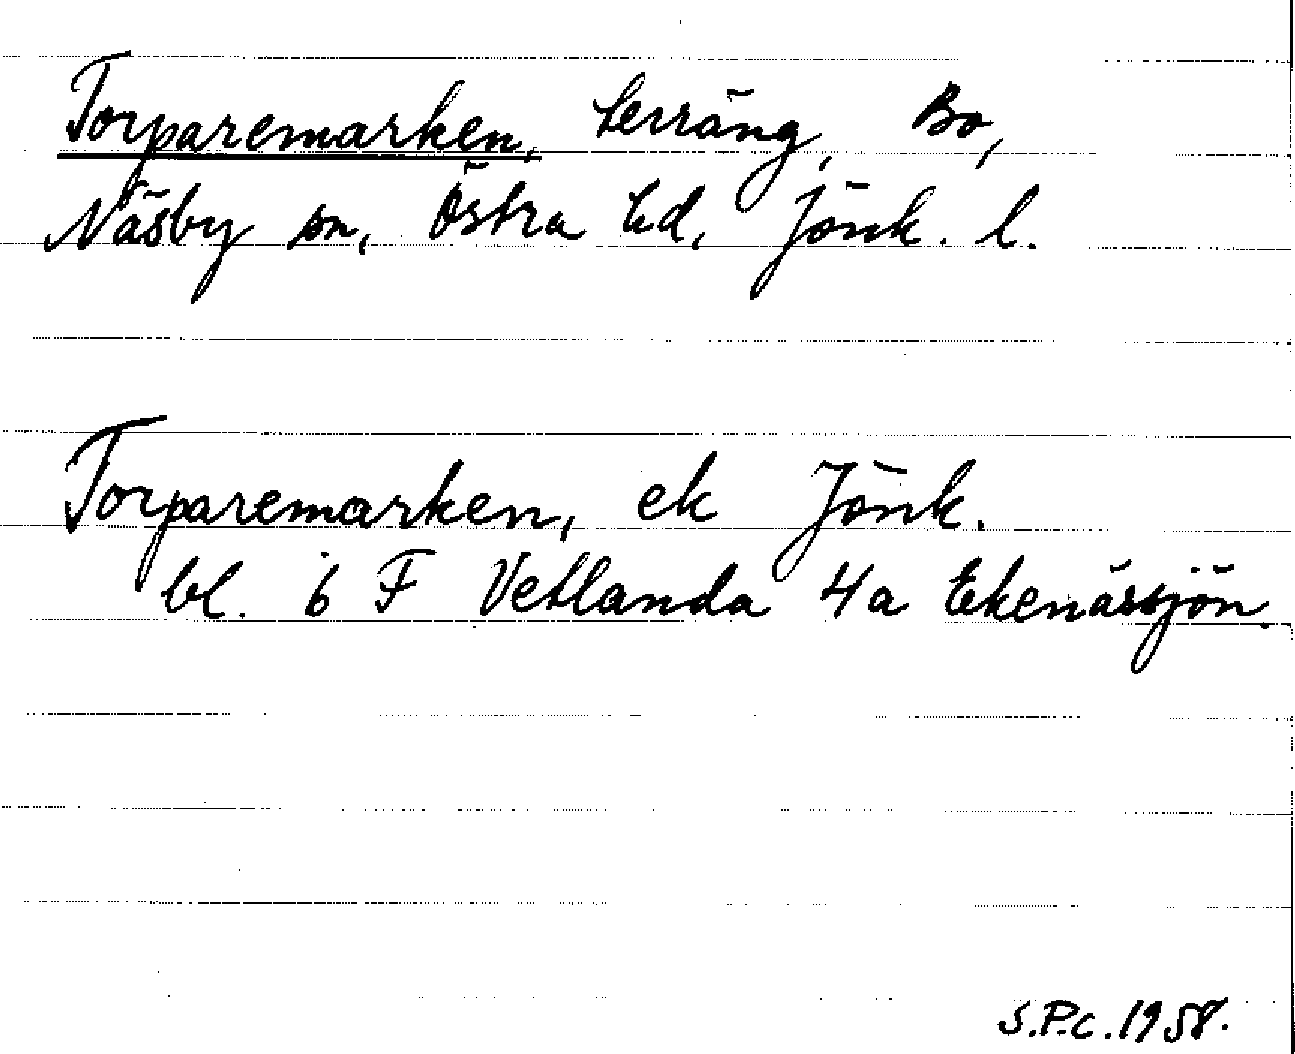 Torparemarken, terräng, Bo,
Näsby sn, Östra hd, Jönk. l.
Torparemarken, ek Jönk.
bl. 6 F Vetlanda 4a Ekenässjön.
S.P.C. 1958.